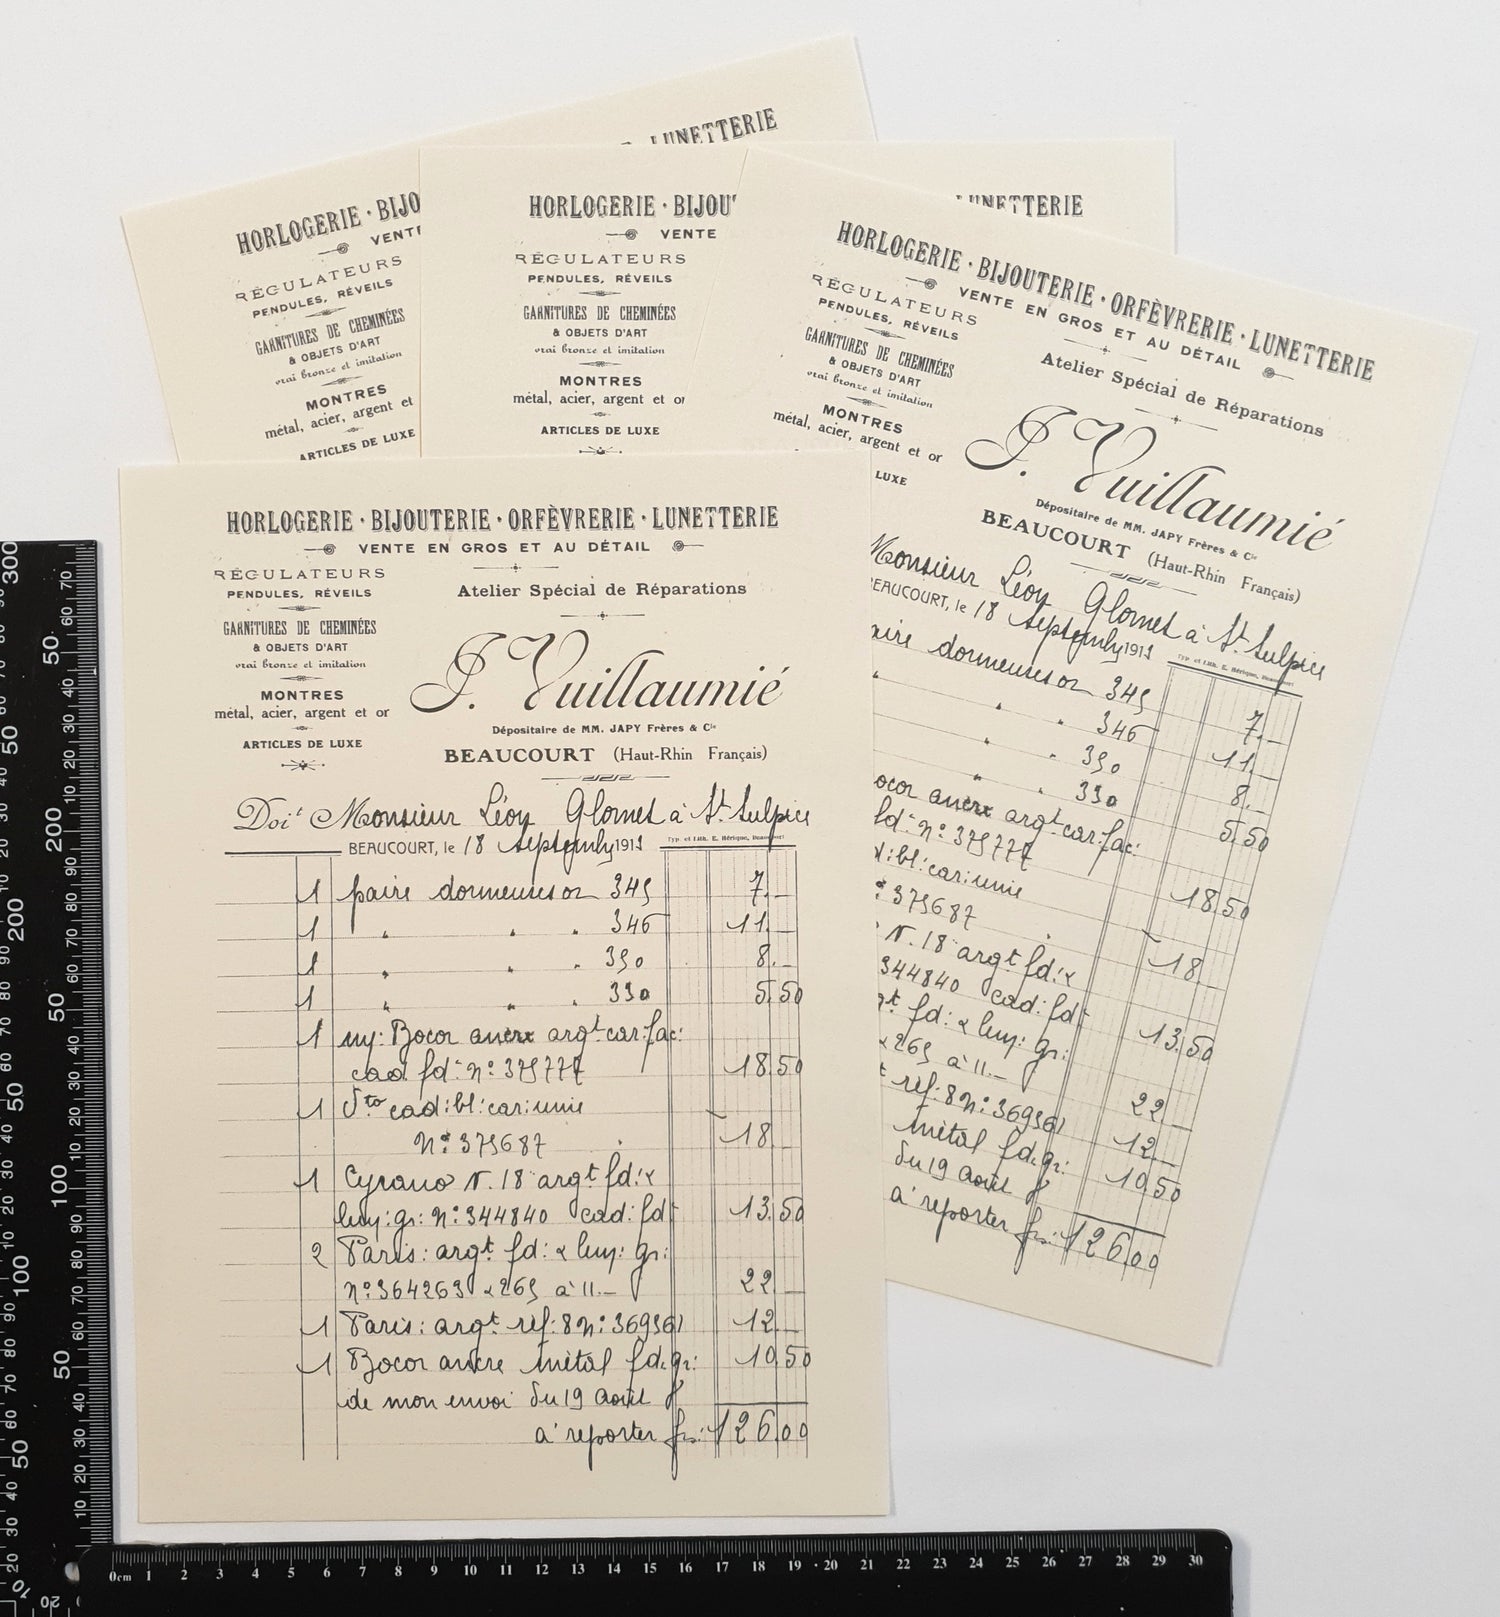 LUNETTERIE
HORLOGERIE · BIJO
VENTE
RÉGULATEURS
PENDULES, RÉVEILS
GARNITURES DE CHEMINÉES
& OBJETS D'ART
vrai bronze et imitation
MONTRES
métal, acier, argent et
ARTICLES DE LUXE
HORLOGERIE · BIJOU
VENTE
RÉGULATEURS
PENDULES, RÉVEILS
GARNITURES DE CHEMINÉES
& OBJETS D'ART
vrai bronze et imitation
MONTRES
métal, acier, argent et or
ARTICLES DE LUXE
LUNETTERIE
HORLOGERIE · BIJOUTERIE · ORFÈVRERIE · LUNETTERIE
VENTE EN GROS ET AU DÉTAIL
RÉGULATEURS
PENDULES, RÉVEILS
GARNITURES DE CHEMINÉES
& OBJETS D'ART
vrai bronze et imitation
MONTRES
métal, acier, argent et or
LUXE
Atelier Spécial de Réparations
J. Vuillaumié
Dépositaire de MM. JAPY Frères & Cie
BEAUCOURT (Haut-Rhin Français)
Monsieur Léon Glornet à St. Sulpice
BEAUCOURT, le 18 1911
Typ. et Lith. E. Hérique, Beaucourt
dormeuses or 345 7.-
" " 346 11.-
" " 350 8.-
" " 330 5.50
ancre argt car: fac:
fd: No: 375777 18.50
bl: car: unie
375687 18
N. 18 argt fd: &
344840 cad: fd: 13.50
fd: & luy: gr:
& 265 à 11.- 22
réf: 8 No: 369361 12
métal fd. gr: 10.50
du 19 août
à reporter frs: 126.00
HORLOGERIE · BIJOUTERIE · ORFÈVRERIE · LUNETTERIE
VENTE EN GROS ET AU DÉTAIL
RÉGULATEURS
PENDULES, RÉVEILS
GARNITURES DE CHEMINÉES
& OBJETS D'ART
vrai bronze et imitation
MONTRES
métal, acier, argent et or
ARTICLES DE LUXE
Atelier Spécial de Réparations
J. Vuillaumié
Dépositaire de MM. JAPY Frères & Cie
BEAUCOURT (Haut-Rhin Français)
Doit Monsieur Léon Glornet à St. Sulpice
BEAUCOURT, le 18 1911
Typ. et Lith. E. Hérique, Beaucourt
1 paire dormeuses or 345 7.-
1 " " " 346 11.-
1 " " " 350 8.-
1 " " " 330 5.50
1 Bocor ancre argt car: fac:
cad fd: No: 375777 18.50
1 dto cad: bl: car: unie
No: 375687 18
1 Cyrano N. 18 argt fd: &
luy: gr: No: 344840 cad: fd: 13.50
2 Paris: argt fd: & luy: gr:
No: 364263 & 265 à 11.- 22
1 Paris: argt réf: 8 No: 369361 12
1 Bocor ancre métal fd. gr: 10.50
de mon envoi du 19 août
à reporter frs: 126.00
0cm 1 2 3 4 5 6 7 8 9 10 11 12 13 14 15 16 17 18 19 20 21 22 23 24 25 26 27 28 29 30